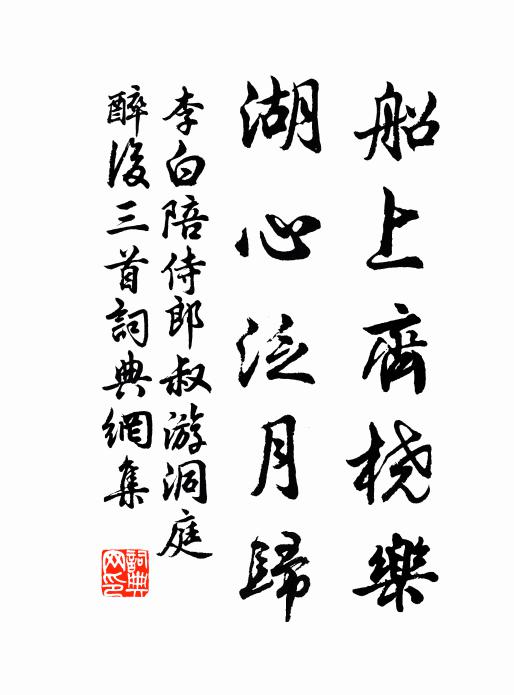 船上齊橈樂
湖心泛月歸
李白陪侍郎叔游洞庭
醉後三首詞典網集
詞典网印